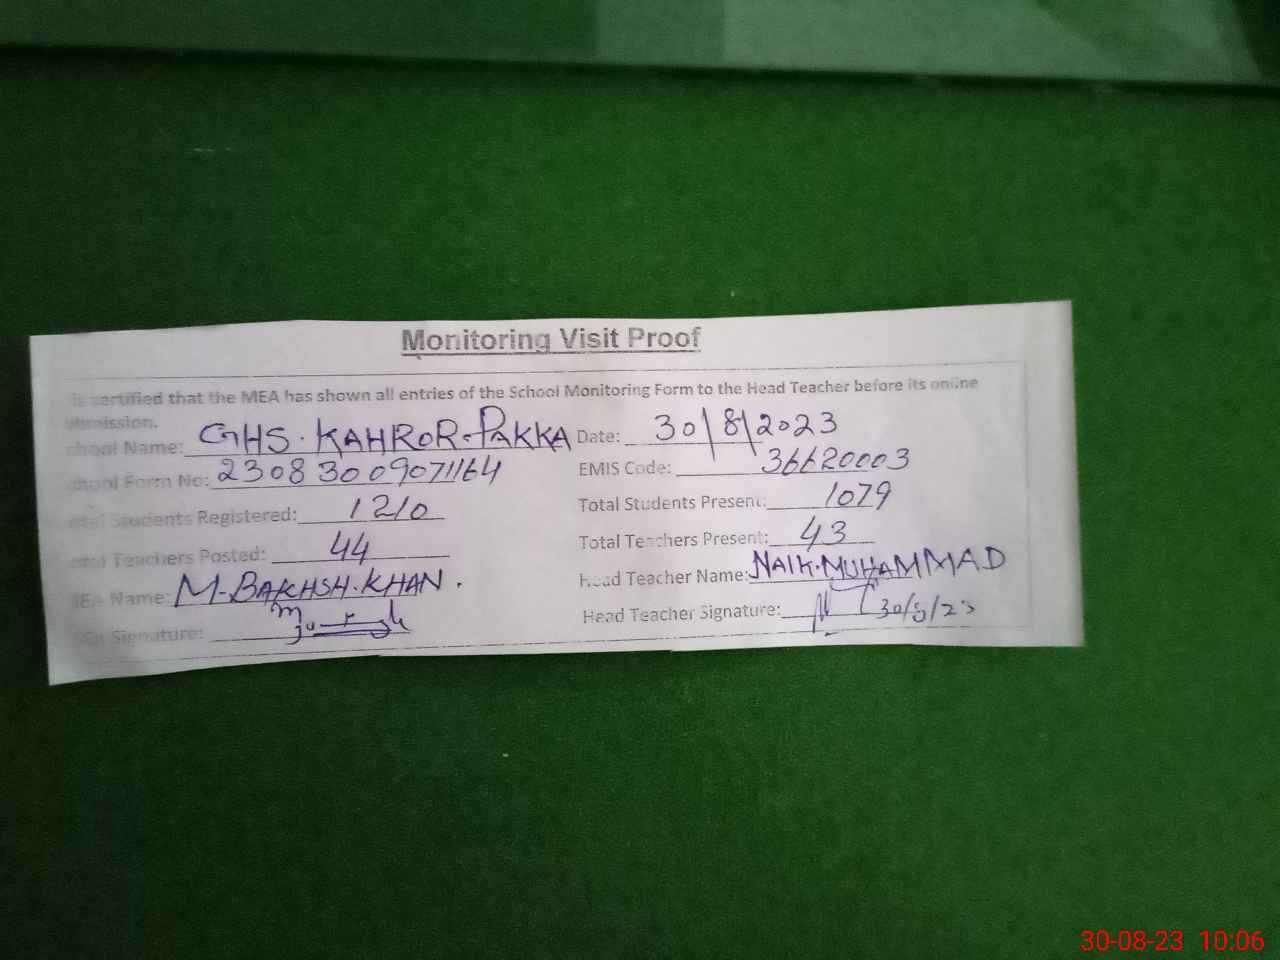 Monitoring Visit Proof
is certified that the MEA has shown all entries of the School Monitoring Form to the Head Teacher before its online
ubmission.
chool Name: GHS. KAHROR. PAKKA Date: 30/8/2023
chool Form No: 23083009071164 EMIS Code: 36620003
otal Students Registered: 1210 Total Students Present: 1079
otal Teachers Posted: 44 Total Teachers Present: 43
MEA Name: M. BAKHSH. KHAN. Head Teacher Name: NAIK. MUHAMMAD
MEA Signature: Head Teacher Signature: 30/8/23
30-08-23 10:06